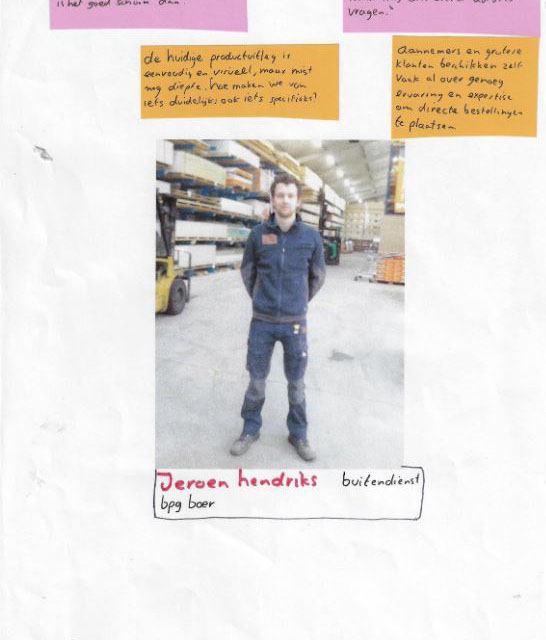 is het goed schuin aan.
vragen."
de huidige productuitleg is
eenvoudig en visueel, maar mist
nog diepte. hoe maken we van
iets duidelijks ook iets specifieks?
aannemers en grotere
klanten beschikken zelf
vaak al over genoeg
ervaring en expertise
om directe bestellingen
te plaatsen
Jeroen hendriks buitendienst
bpg boer